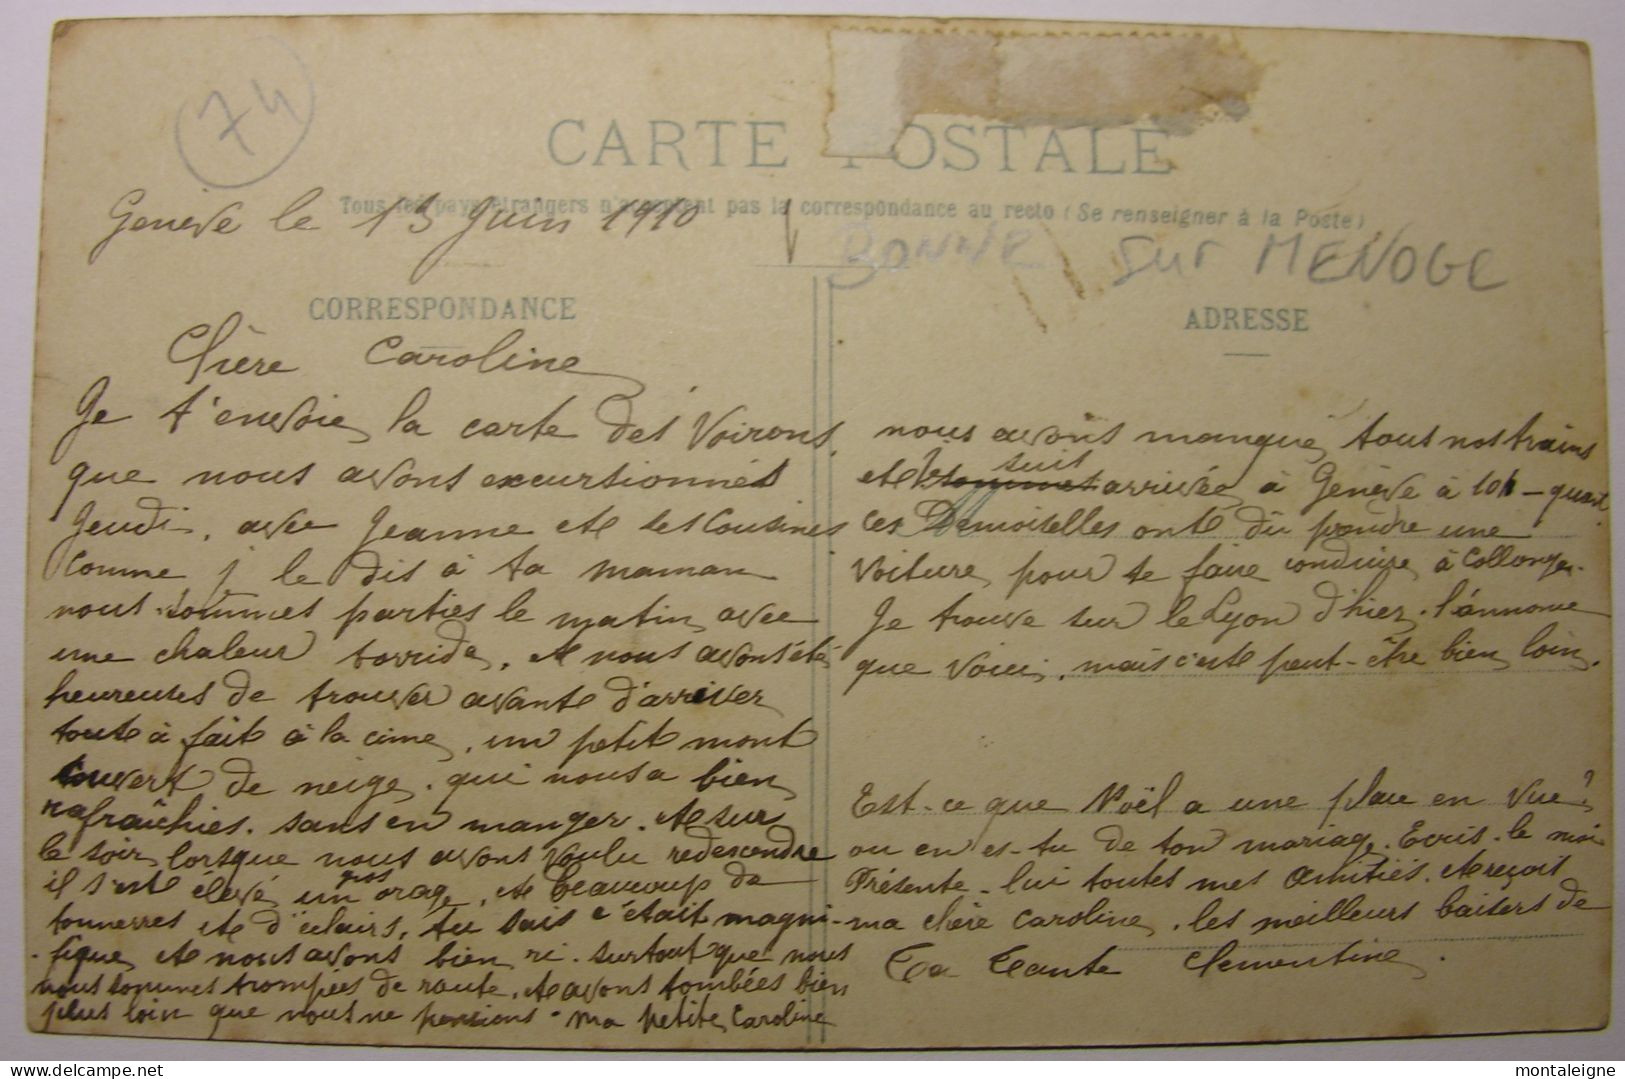 74
CARTE POSTALE
Tous les pays étrangers n'acceptent pas la correspondance au recto (Se renseigner à la Poste)
Genève le 13 Juin 1910
BONNE sur MENOGE
CORRESPONDANCE
ADRESSE
Chère Caroline
Je t'envoie la carte des Voirons,
que nous avons excursionnés
Jeudi, avec Jeanne et ses Cousines
Comme j le dis à ta maman
nous sommes parties le matin avec
une chaleur torride, et nous avons été
heureuses de trouver avant d'arriver
tout à fait à la cime, un petit mont
couvert de neige. qui nous a bien
rafraîchies. sans en manger. et sur
le soir lorsque nous avons voulu redescendre
il s'est élevé un gros orage, et beaucoup de
tonnerres et d'éclairs, tu sais c'était magni-
-fique et nous avons bien ri. surtout que nous
nous sommes trompées de route, et avons tombées bien
plus loin que nous ne pensions. ma petite Caroline
nous avons manqué tous nos trains
et je suis arrivée à Genève à 10h - quart.
Ces Demoiselles ont dû prendre une
voiture pour se faire conduire à Collonges.
Je trouve sur le Lyon d'hier. l'annonce
que voici, mais c'est peut-être bien loin.
Est-ce que Noël a une place en vue?
ou en es-tu de ton mariage. Ecris-le moi
Présente-lui toutes mes amitiés. et reçoit
ma chère Caroline. les meilleurs baisers de
Ta Tante Clementine.
delcampe.net
montaleigne